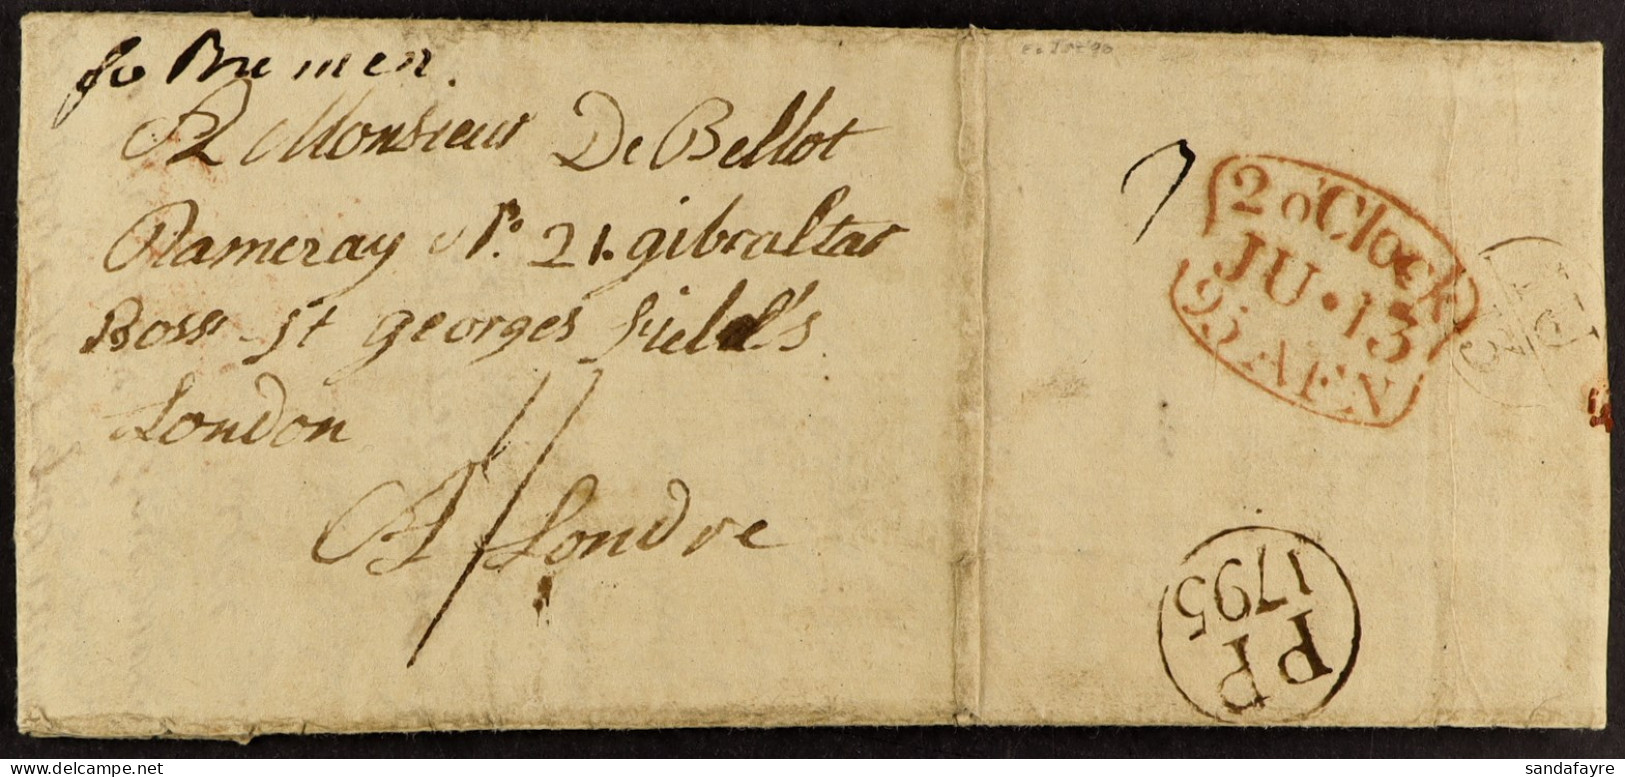 fo Bremen.
A Monsieur De Bellot
Rameray No. 21. gibraltar
Boss St georges field's
London
A Londre
2 o'Clock
JU • 13
95 AFN
PP
1795
sandafayre